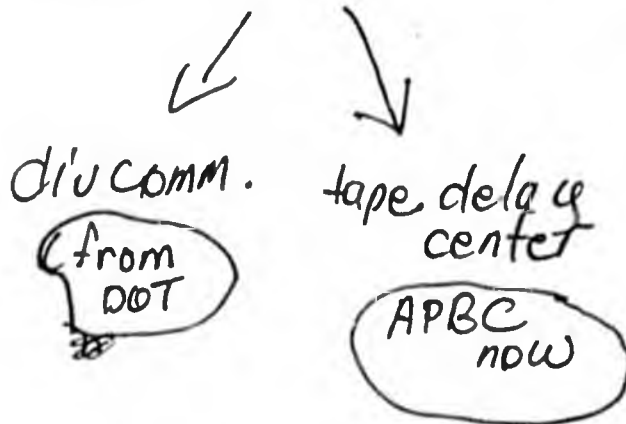 div comm.
from
DOT
tape delay
center
APBC
now